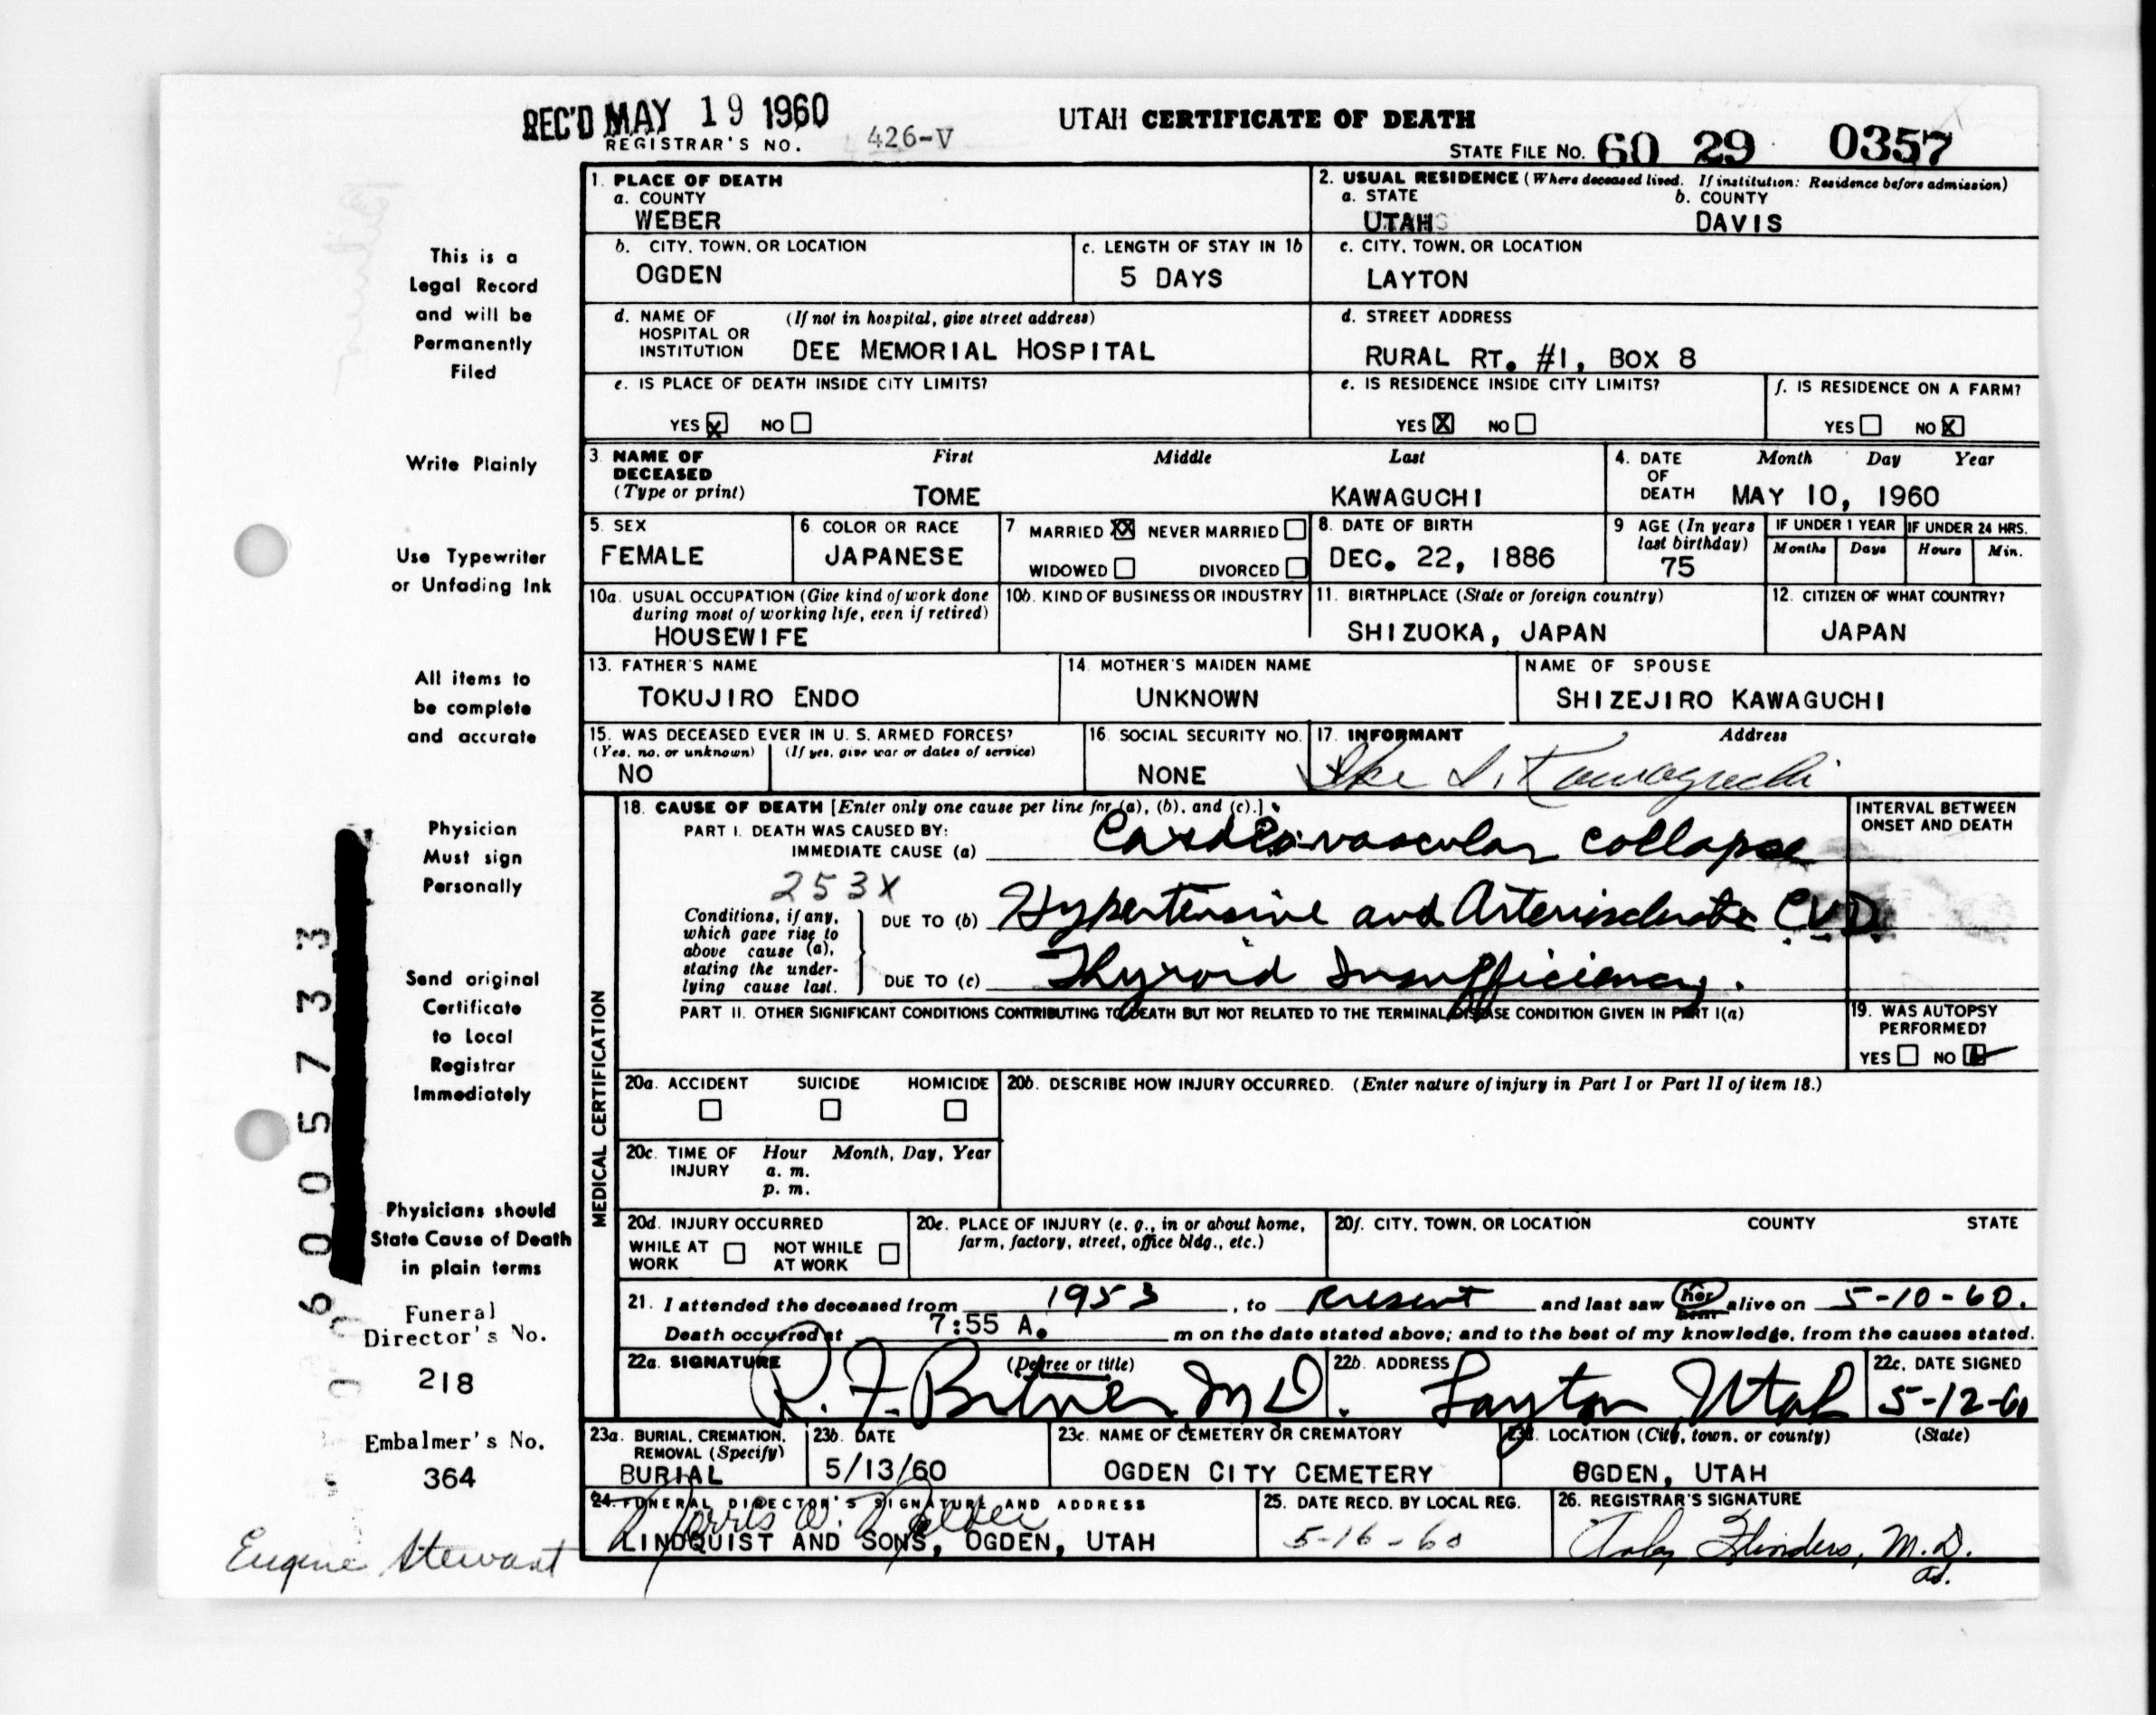 REC'D MAY 19 1960
UTAH CERTIFICATE OF DEATH
REGISTRAR'S NO. 426-V
STATE FILE NO. 60 29 0357
This is a
Legal Record
and will be
Permanently
Filed
Write Plainly
Use Typewriter
or Unfading Ink
All items to
be complete
and accurate
Physician
Must sign
Personally
Send original
Certificate
to Local
Registrar
Immediately
Physicians should
State Cause of Death
in plain terms
Funeral
Director's No.
218
Embalmer's No.
364
Eugene Stewart
60 05733
1. PLACE OF DEATH
a. COUNTY
WEBER
2. USUAL RESIDENCE (Where deceased lived. If institution: Residence before admission)
a. STATE b. COUNTY
UTAH DAVIS
b. CITY, TOWN, OR LOCATION
OGDEN
c. LENGTH OF STAY IN 1b
5 DAYS
c. CITY, TOWN, OR LOCATION
LAYTON
d. NAME OF (If not in hospital, give street address)
HOSPITAL OR
INSTITUTION DEE MEMORIAL HOSPITAL
d. STREET ADDRESS
RURAL RT. #1, BOX 8
e. IS PLACE OF DEATH INSIDE CITY LIMITS?
YES X NO
e. IS RESIDENCE INSIDE CITY LIMITS?
YES X NO
f. IS RESIDENCE ON A FARM?
YES NO X
3. NAME OF First Middle Last
DECEASED
(Type or print) TOME KAWAGUCHI
4. DATE Month Day Year
OF
DEATH MAY 10, 1960
5. SEX
FEMALE
6. COLOR OR RACE
JAPANESE
7. MARRIED XX NEVER MARRIED
WIDOWED DIVORCED
8. DATE OF BIRTH
DEC. 22, 1886
9 AGE (In years
last birthday)
75
IF UNDER 1 YEAR IF UNDER 24 HRS.
Months Days Hours Min.
10a. USUAL OCCUPATION (Give kind of work done
during most of working life, even if retired)
HOUSEWIFE
10b. KIND OF BUSINESS OR INDUSTRY
11. BIRTHPLACE (State or foreign country)
SHIZUOKA, JAPAN
12. CITIZEN OF WHAT COUNTRY?
JAPAN
13. FATHER'S NAME
TOKUJIRO ENDO
14. MOTHER'S MAIDEN NAME
UNKNOWN
NAME OF SPOUSE
SHIZEJIRO KAWAGUCHI
15. WAS DECEASED EVER IN U. S. ARMED FORCES?
(Yes, no, or unknown) (If yes, give war or dates of service)
NO
16. SOCIAL SECURITY NO.
NONE
17. INFORMANT Address
Ike S. Kawaguchi
MEDICAL CERTIFICATION
18. CAUSE OF DEATH [Enter only one cause per line for (a), (b), and (c).]
PART I. DEATH WAS CAUSED BY:
IMMEDIATE CAUSE (a) Cardiovascular collapse
INTERVAL BETWEEN
ONSET AND DEATH
253X
Conditions, if any,
which gave rise to
above cause (a),
stating the under-
lying cause last.
DUE TO (b) Hypertensive and Arteriosclerotic C.V.D.
DUE TO (c) Thyroid Insufficiency.
PART II. OTHER SIGNIFICANT CONDITIONS CONTRIBUTING TO DEATH BUT NOT RELATED TO THE TERMINAL DISEASE CONDITION GIVEN IN PART I(a)
19. WAS AUTOPSY
PERFORMED?
YES NO
20a. ACCIDENT SUICIDE HOMICIDE
20b. DESCRIBE HOW INJURY OCCURRED. (Enter nature of injury in Part I or Part II of item 18.)
20c. TIME OF Hour Month, Day, Year
INJURY a. m.
p. m.
20d. INJURY OCCURRED
WHILE AT NOT WHILE
WORK AT WORK
20e. PLACE OF INJURY (e. g., in or about home,
farm, factory, street, office bldg., etc.)
20f. CITY, TOWN, OR LOCATION COUNTY STATE
21. I attended the deceased from 1953, to Present and last saw her alive on 5-10-60.
Death occurred at 7:55 A. m on the date stated above; and to the best of my knowledge, from the causes stated.
22a. SIGNATURE (Degree or title)
R. F. Bitner M D.
22b. ADDRESS
Layton Utah
22c. DATE SIGNED
5-12-60
23a. BURIAL, CREMATION,
REMOVAL (Specify)
BURIAL
23b. DATE
5/13/60
23c. NAME OF CEMETERY OR CREMATORY
OGDEN CITY CEMETERY
23d. LOCATION (City, town, or county) (State)
OGDEN, UTAH
24. FUNERAL DIRECTOR'S SIGNATURE AND ADDRESS
LINDQUIST AND SONS, OGDEN, UTAH
25. DATE RECD. BY LOCAL REG.
5-16-60
26. REGISTRAR'S SIGNATURE
Flinders, M.D.